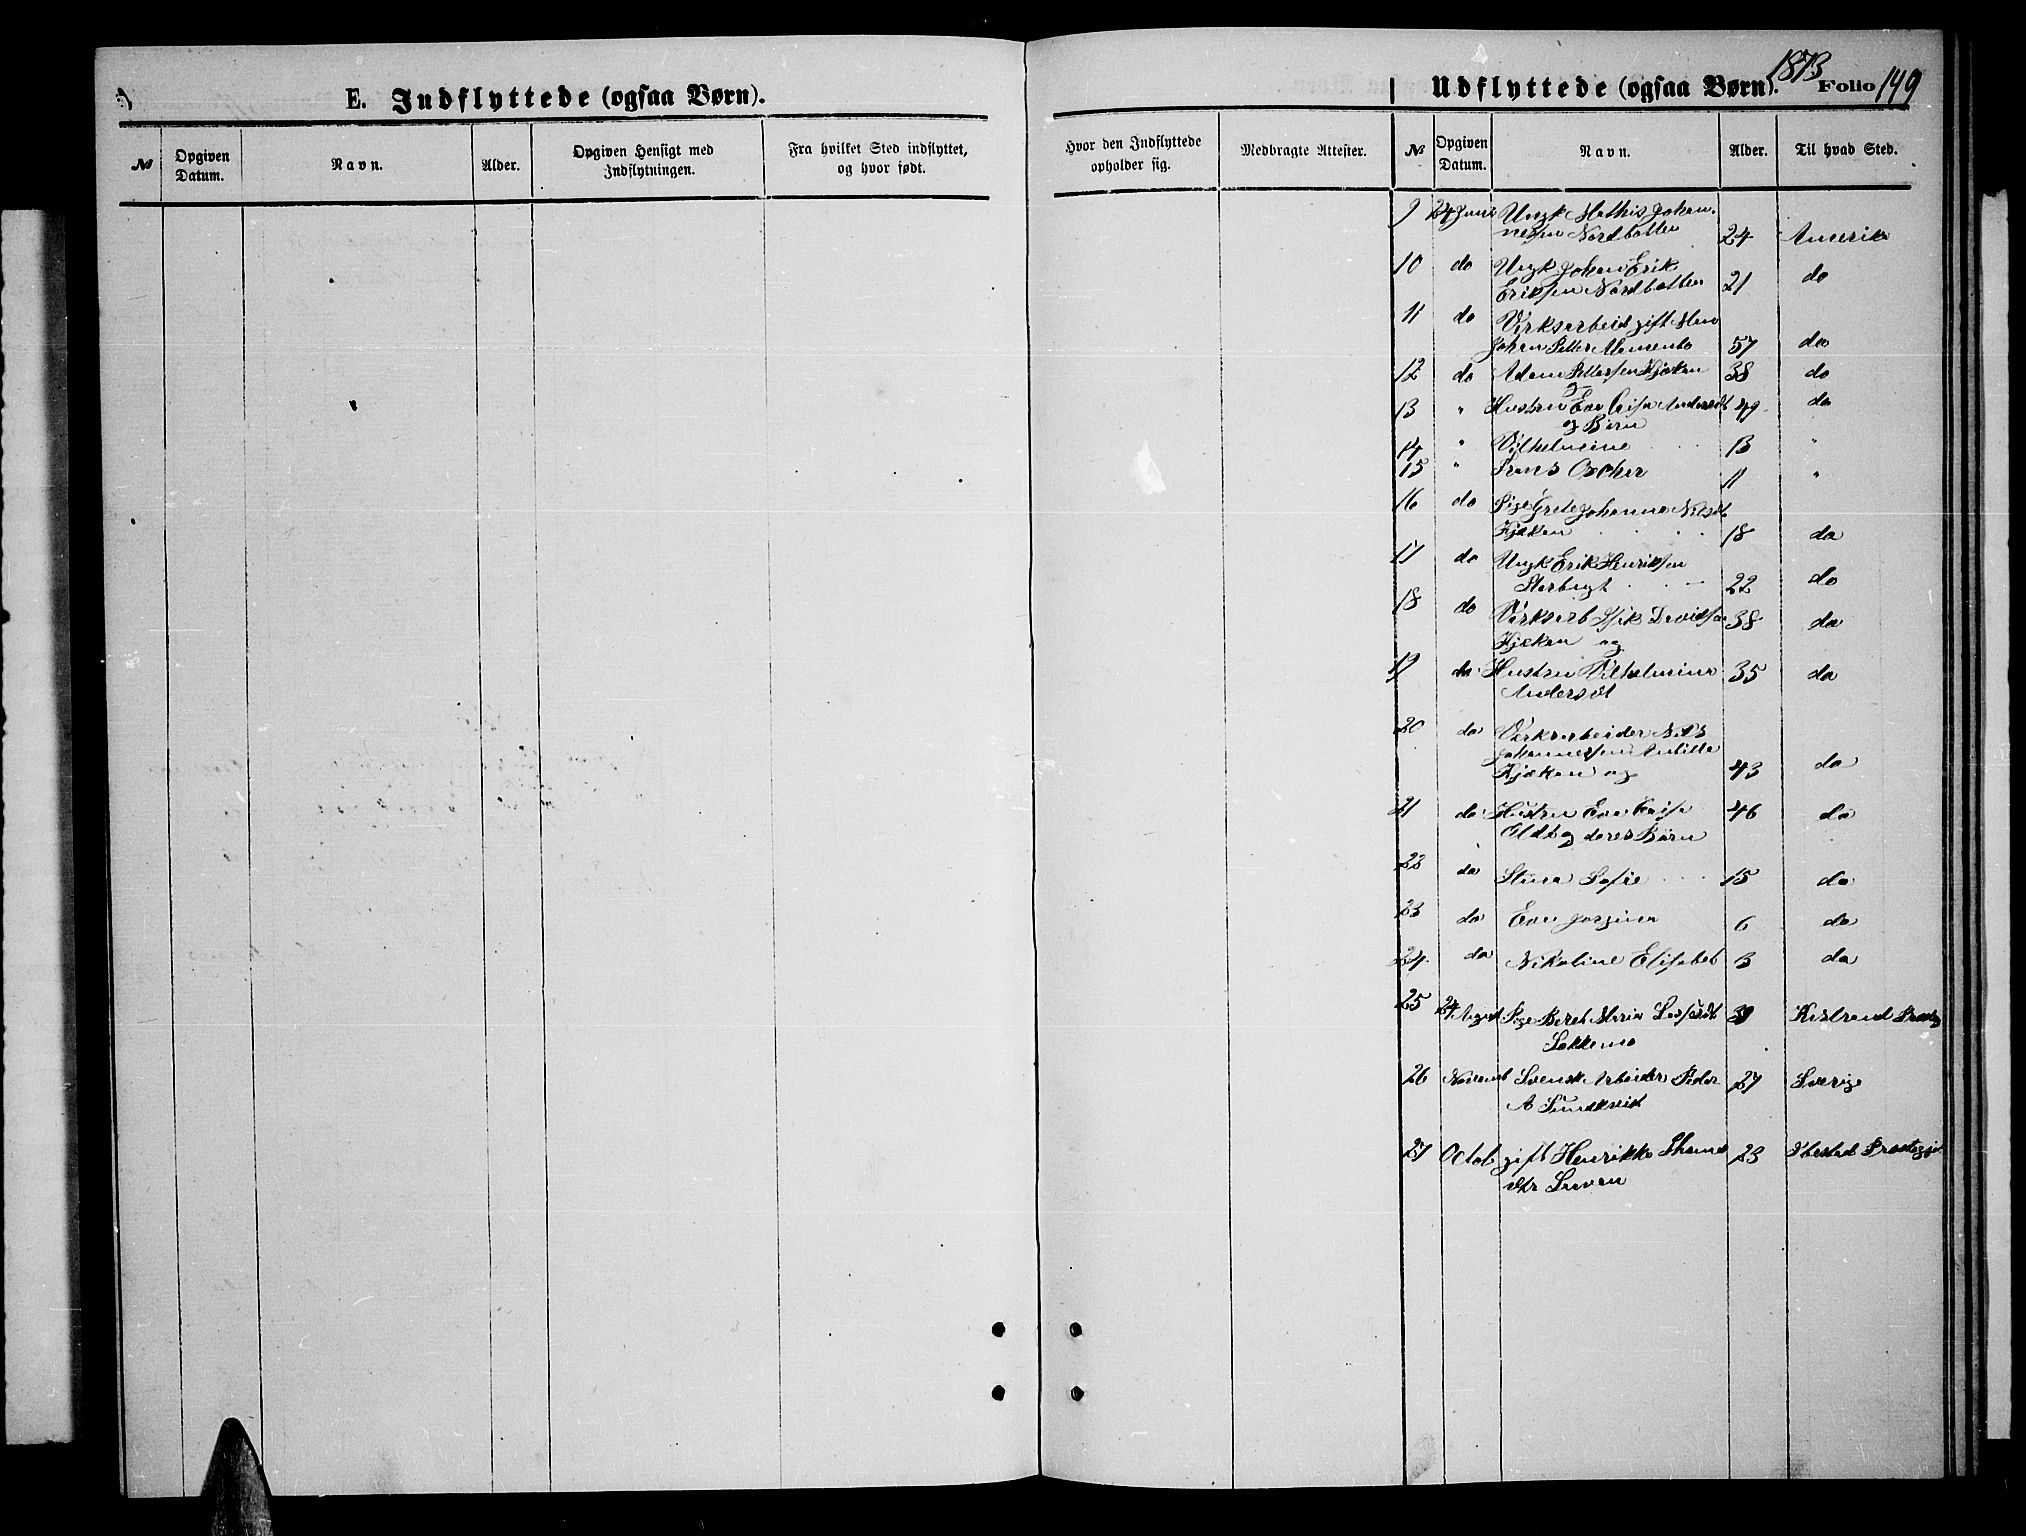 E. Indflyttede (ogsaa Børn).
№ Opgiven Datum. Navn. Alder. Opgiven Hensigt med Indflytningen. Fra hvilket Sted indflyttet, og hvor født.
Udflyttede (ogsaa Børn). 1873 Folio 149
Hvor den Indflyttede opholder sig. Medbragte Attester. № Opgiven Datum. Navn. Alder. Til hvad Sted.
9 24 Juni Ungk Mathis Johan-
nessen Nordbotten 24 Amerik
10 do Ungk Johan Erik
Eriksen Nordbotten 21 do
11 do Værksarbeid gift Man
Johan Petter 57 do
12 do Adam Pettersen Kjæken 38 do
og
13 " Hustru Eva Caisa Andersdt 49 do
og Børn
14 " Vilhelmine 13 "
15 " Frans Oscher 11 "
16 do Pige Grete Johanna Nilsdt
Kjæken 18 do
17 do Ungk Erik Henriksen
Storbugt 22 do
18 do Værksarb Isak Davidsen 38 do
Kjæken og
19 do Hustru Vilhelmina 35 do
Andersdt
20 do Værksarbeider Nils
Johannessen
Kjæken og 43 do
21 do Hustru Eva Caisa 46 do
Olsdt og deres Børn
22 do Stina Sofie 15 do
23 do Eva Jorgina 6 do
24 do Nikoline Elisabet 3 do
25 24 August Pige Beret Maria Larsdt 39 Kistrand Præstg
Lakkema
26 Novemb Svensk Arbeider Peder 27 Sverige
A Sundkvist
27 Octob gift Henrikke Thomas 23 Ibestad Præstegjd
dtr